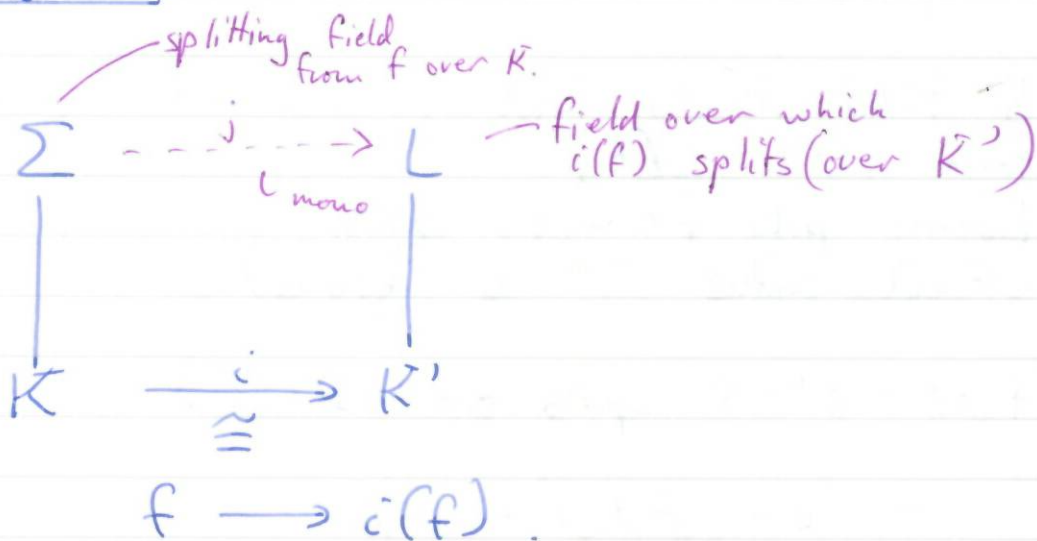 splitting field
from f over K.
Σ - - - j - - -> L
field over which
i(f) splits (over K')
mono
K i K'
≅
f ⟶ i(f).